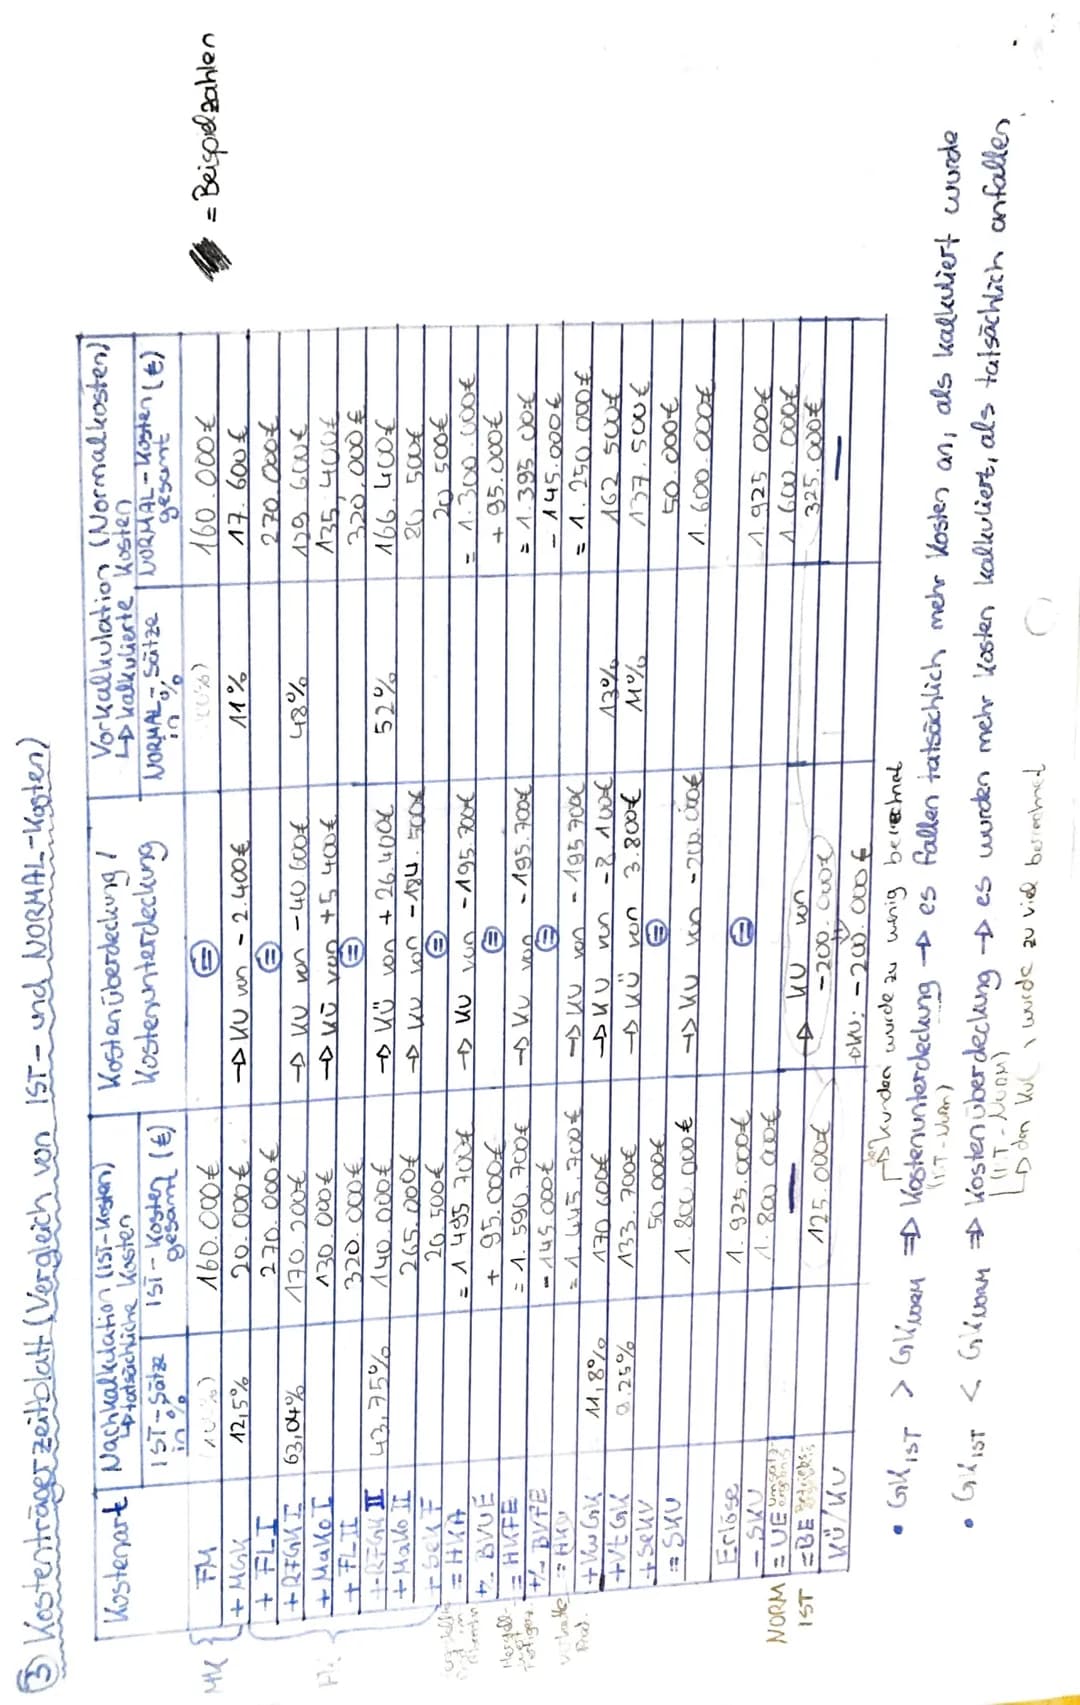 ③ Kostenträgerzeitblatt (Vergleich von IST- und NORMAL-Kosten)
= Beispielzahlen
Kostenart | Nachkalkulation (IST-Kosten) ↳ tatsächliche Kosten | Kostenüberdeckung / Kostenunterdeckung | Vorkalkulation (Normalkosten) ↳ kalkulierte Kosten
IST-Sätze in % | IST-Kosten (€) gesamt | NORMAL-Sätze in % | NORMAL-Kosten (€) gesamt
MK { FM | 160.000€ | = | 160.000€
+ MGK | 12,5% | 20.000€ | → KU von -2.400€ | 11% | 17.600€
+ FL I | 270.000€ | = | 270.000€
+ RFGK I | 63,04% | 170.200€ | → KU von -40.600€ | 48% | 129.600€
+ MaKo I | 130.000€ | → KÜ von +5.400€ | 135.400€
+ FL II | 320.000€ | = | 320.000€
+ RFGK II | 43,75% | 140.000€ | → KÜ von +26.400€ | 52% | 166.400€
+ MaKo II | 265.000€ | → KU von -184.500€ | 80.500€
+ SeKF | 20.500€ | = | 20.500€
= HKA | = 1.495.700€ | → KU von -195.700€ | = 1.300.000€
+/- BVUE | + 95.000€ | = | + 95.000€
= HKFE | = 1.590.700€ | → KU von -195.700€ | = 1.395.000€
+/- BVFE | - 145.000€ | = | - 145.000€
= HKU | = 1.445.700€ | → KU von -195.700€ | = 1.250.000€
+ VwGK | 11,8% | 170.600€ | → KU von -8.100€ | 13% | 162.500€
+ VtGK | 9,25% | 133.700€ | → KÜ von 3.800€ | 11% | 137.500€
+ SeKV | 50.000€ | = | 50.000€
= SKU | 1.800.000€ | → KU von -200.000€ | 1.600.000€
Erlöse | 1.925.000€ | = | 1.925.000€
- SKU | 1.800.000€ | 1.600.000€
NORM = UE Umsatzergebnis | — | → KU von -200.000€ | 325.000€
IST = BE Betriebs | 125.000€ | —
KÜ/KU | → KU: -200.000€
↳ den Kunden wurde zu wenig berechnet
• GK IST > GK NORM ⇒ Kostenunterdeckung → es fallen tatsächlich mehr Kosten an, als kalkuliert wurde
• GK IST < GK NORM ⇒ Kostenüberdeckung → es wurden mehr Kosten kalkuliert, als tatsächlich anfallen
↳ den wurde zu viel berechnet